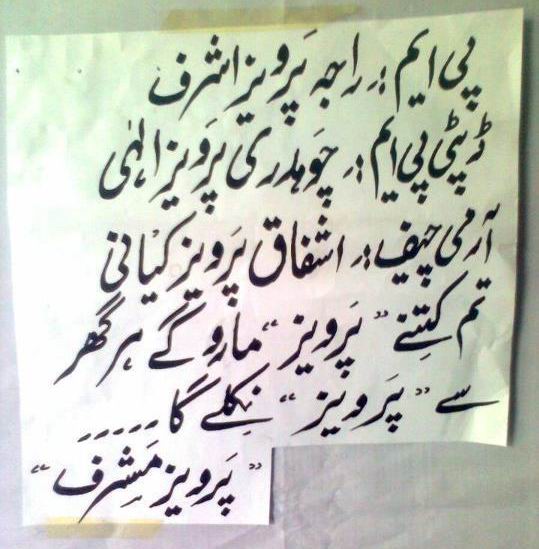 پی ایم :۔ راجہ پَرویز اشرف
ڈپٹی پی ایم :۔ چَوہدری پَرویز الٰہی
آرمی چیف :۔ اشفاق پَرویز کیانی
تم کتِنے " پَرویز " مارو گے ہر گھر
سے " پَرویز " نِکلے گا -----
" پَرویز مَشِرف "